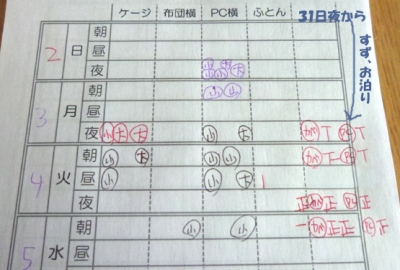 ケージ 布団横 PC横 ふとん 31日夜から
すず、お泊り
2 日 朝
昼
夜 小 小 小 小 大
3 月 朝 小 小
昼
夜 小 大 大 小 大
4 火 朝 小 大 小 小
昼 小 小 大
夜 正 正
5 水 朝 小 小 正 正 正
昼